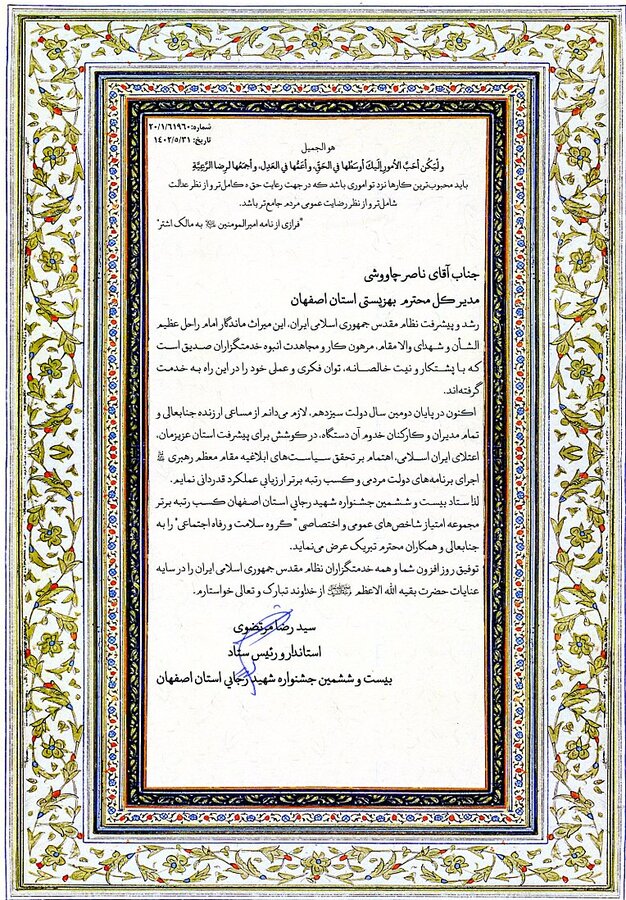 شماره: ۲۰/۱/۶۱۹۶۰
تاریخ: ۱۴۰۲/۵/۳۱
هو الجمیل
وَلیَکُن أحَبَّ الأمورِ إلَیكَ أوسَطُها فِي الحَقِّ، وأعَمُّها فِي العَدلِ، وأجمَعُها لِرِضا الرَّعِیَّةِ
باید محبوب‌ترین کارها نزد تو اموری باشد که در جهت رعایت حق ه کامل‌تر و از نظر عدالت
شامل‌تر و از نظر رضایت عمومی مردم جامع‌تر باشد.
"فرازی از نامه امیرالمومنین به مالک اشتر"
جناب آقای ناصر چاووشی
مدیر کل محترم بهزیستی استان اصفهان
رشد و پیشرفت نظام مقدس جمهوری اسلامی ایران، این میراث ماندگار امام راحل عظیم
الشأن و شهدای والا مقام، مرهون کار و مجاهدت انبوه خدمتگزاران صدیق است
که با پشتکار و نیت خالصانه، توان فکری و عملی خود را در این راه به خدمت
گرفته‌اند.
اکنون در پایان دومین سال دولت سیزدهم، لازم می‌دانم از مساعی ارزنده جنابعالی و
تمام مدیران و کارکنان خدوم آن دستگاه، در کوشش برای پیشرفت استان عزیزمان،
اعتلای ایران اسلامی، اهتمام بر تحقق سیاست‌های ابلاغیه مقام معظم رهبری
اجرای برنامه‌های دولت مردمی و کسب رتبه برتر ارزیابی عملکرد قدردانی نمایم.
لذا ستاد بیست و ششمین جشنواره شهید رجایی استان اصفهان کسب رتبه برتر
مجموعه امتیاز شاخص‌های عمومی و اختصاصی "گروه سلامت و رفاه اجتماعی" را به
جنابعالی و همکاران محترم تبریک عرض می‌نماید.
توفیق روز افزون شما و همه خدمتگزاران نظام مقدس جمهوری اسلامی ایران را در سایه
عنایات حضرت بقیه الله الاعظم از خداوند تبارک و تعالی خواستارم.
سید رضا مرتضوی
استاندار و رئیس ستاد
بیست و ششمین جشنواره شهید رجایی استان اصفهان